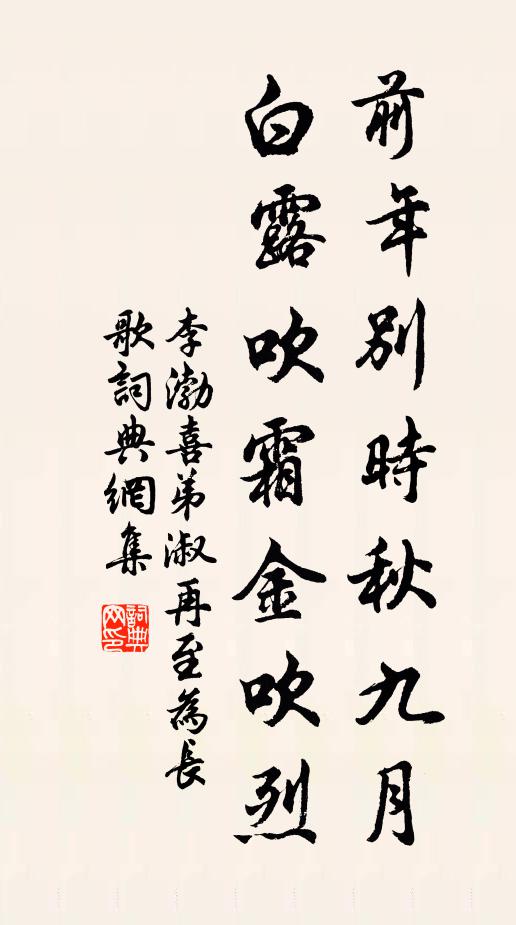 前年別時秋九月
白露吹霜金吹烈
李渤喜弟淑再至為長
歌詞典網集
詞典网印